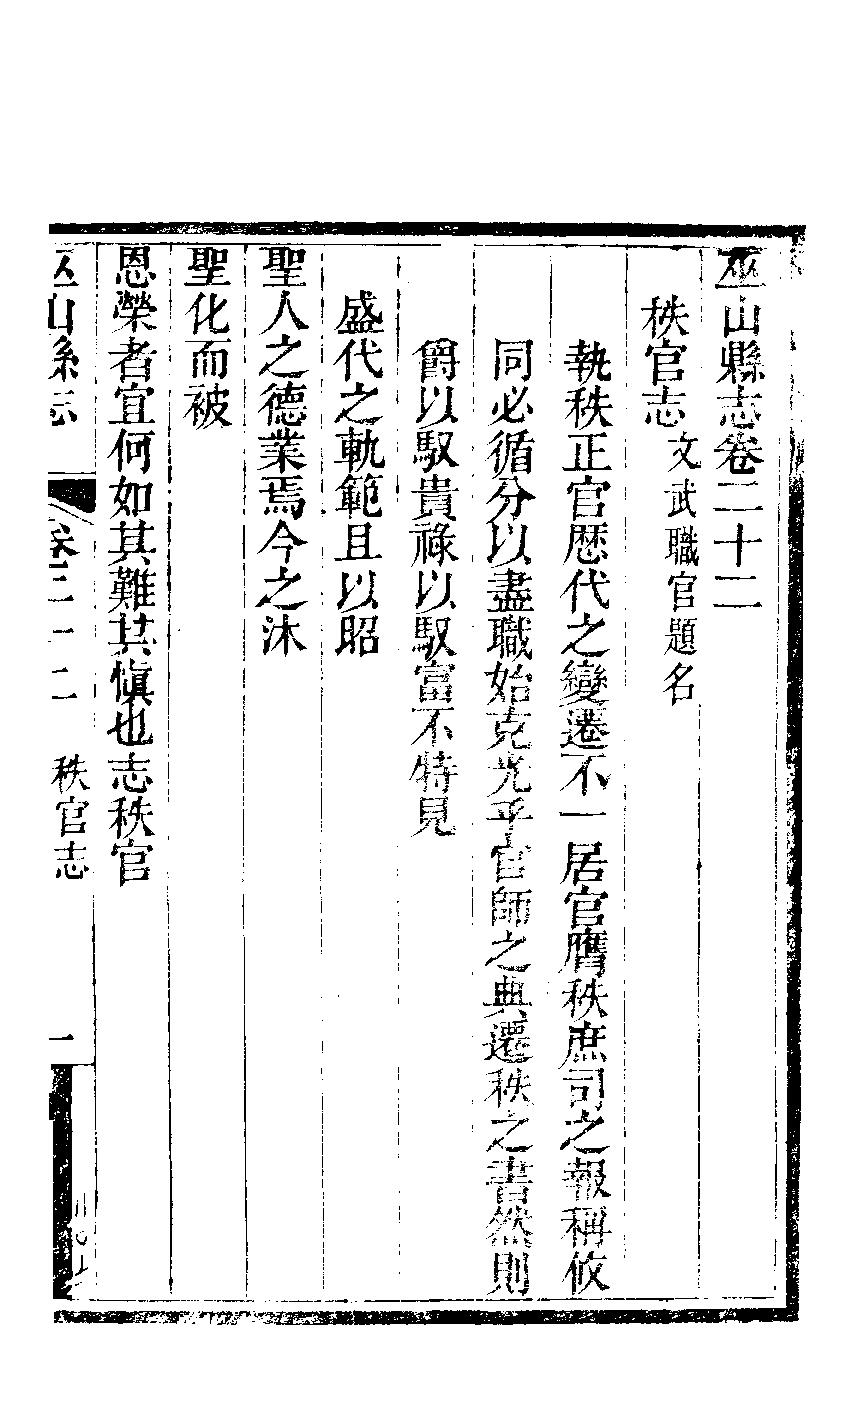 巫山縣志卷二十二
秩官志 文武職官題名
執秩正官歷代之變遷不一居官膺秩庶司之報稱攸
同必循分以盡職始克光乎官師之典遷秩之書然則
爵以馭貴祿以馭富不特見
盛代之軌範且以昭
聖人之德業焉今之沐
聖化而被
恩榮者宜何如其難其愼也志秩官
巫山縣志 卷二十二 秩官志 一